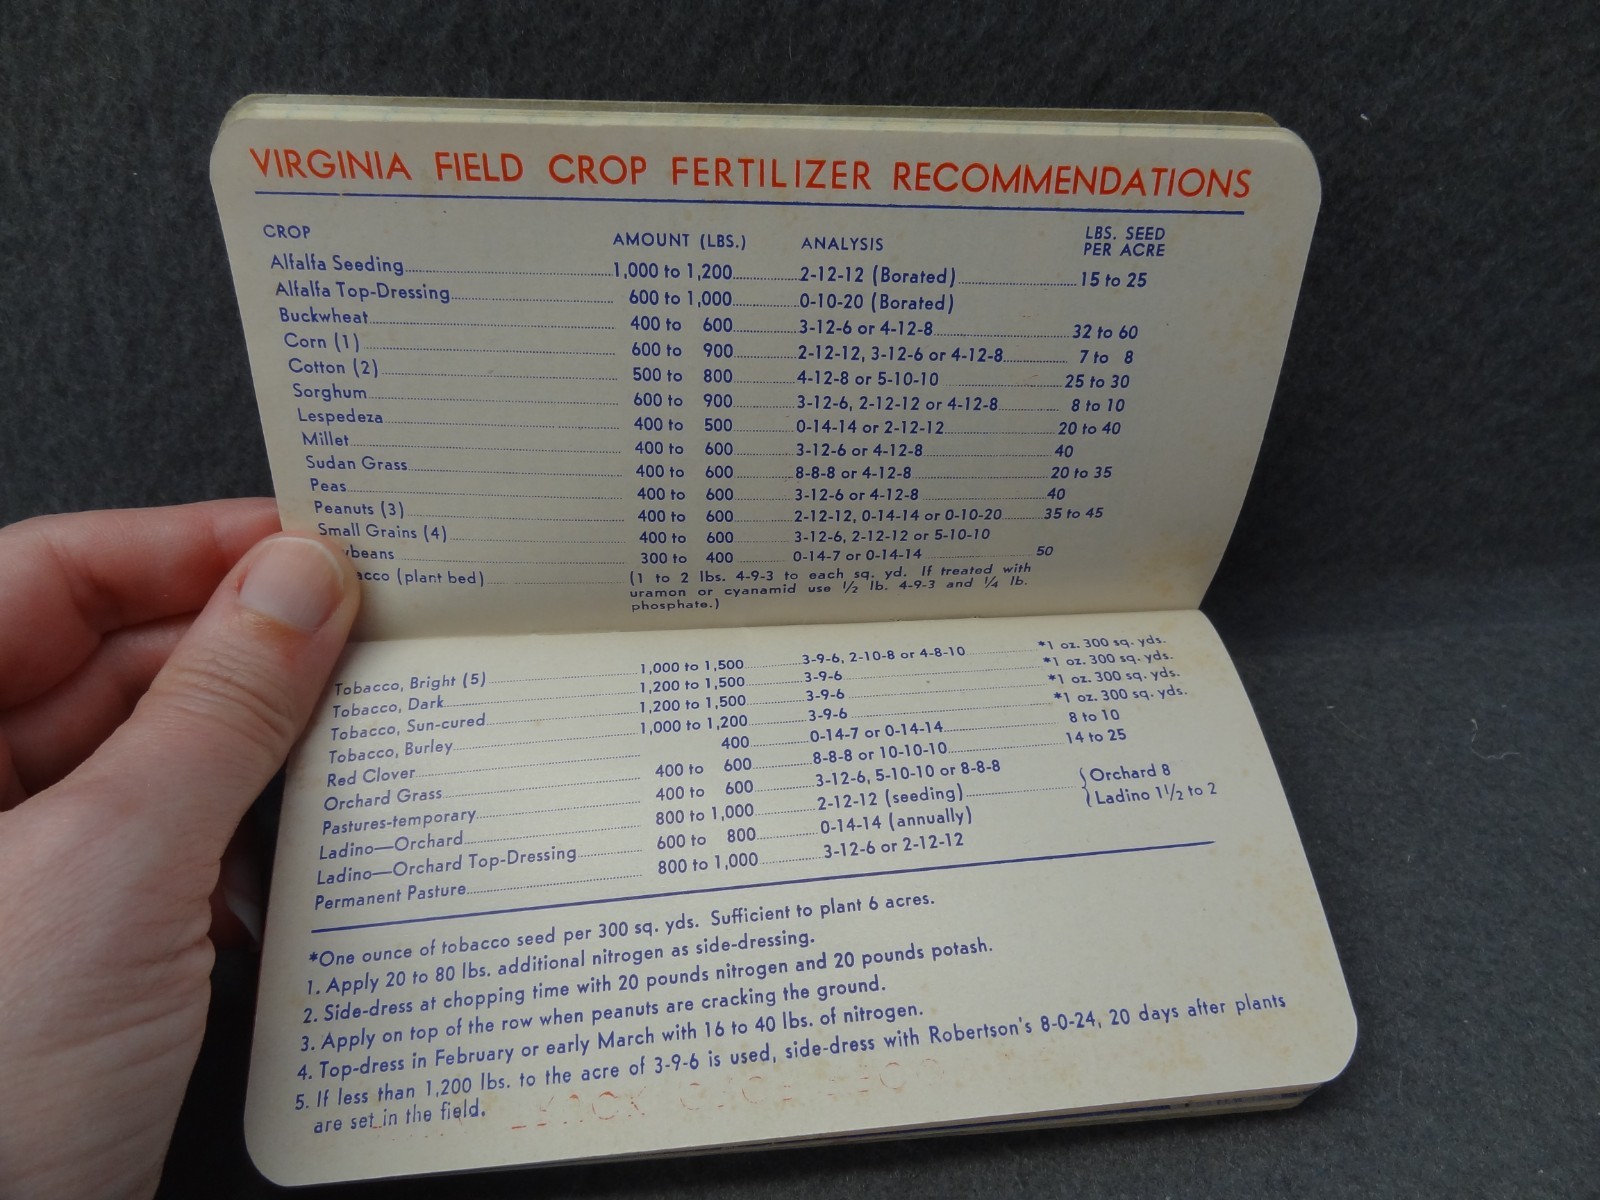 VIRGINIA FIELD CROP FERTILIZER RECOMMENDATIONS
CROP AMOUNT (LBS.) ANALYSIS LBS. SEED PER ACRE
Alfalfa Seeding 1,000 to 1,200 2-12-12 (Borated) 15 to 25
Alfalfa Top-Dressing 600 to 1,000 0-10-20 (Borated)
Buckwheat 400 to 600 3-12-6 or 4-12-8 32 to 60
Corn (1) 600 to 900 2-12-12, 3-12-6 or 4-12-8 7 to 8
Cotton (2) 500 to 800 4-12-8 or 5-10-10 25 to 30
Sorghum 600 to 900 3-12-6, 2-12-12 or 4-12-8 8 to 10
Lespedeza 400 to 500 0-14-14 or 2-12-12 20 to 40
Millet 400 to 600 3-12-6 or 4-12-8 40
Sudan Grass 400 to 600 8-8-8 or 4-12-8 20 to 35
Peas 400 to 600 3-12-6 or 4-12-8 40
Peanuts (3) 400 to 600 2-12-12, 0-14-14 or 0-10-20 35 to 45
Small Grains (4) 400 to 600 3-12-6, 2-12-12 or 5-10-10
ybeans 300 to 400 0-14-7 or 0-14-14 50
acco (plant bed) (1 to 2 lbs. 4-9-3 to each sq. yd. If treated with
uramon or cyanamid use 1/2 lb. 4-9-3 and 1/4 lb.
phosphate.)
Tobacco, Bright (5) 1,000 to 1,500 3-9-6, 2-10-8 or 4-8-10 *1 oz. 300 sq. yds.
Tobacco, Dark 1,200 to 1,500 3-9-6 *1 oz. 300 sq. yds.
Tobacco, Sun-cured 1,200 to 1,500 3-9-6 *1 oz. 300 sq. yds.
Tobacco, Burley 1,000 to 1,200 3-9-6 *1 oz. 300 sq. yds.
Red Clover 400 0-14-7 or 0-14-14 8 to 10
Orchard Grass 400 to 600 8-8-8 or 10-10-10 14 to 25
Pastures-temporary 400 to 600 3-12-6, 5-10-10 or 8-8-8
Ladino—Orchard 800 to 1,000 2-12-12 (seeding) Orchard 8 Ladino 1 1/2 to 2
Ladino—Orchard Top-Dressing 600 to 800 0-14-14 (annually)
Permanent Pasture 800 to 1,000 3-12-6 or 2-12-12
*One ounce of tobacco seed per 300 sq. yds. Sufficient to plant 6 acres.
1. Apply 20 to 80 lbs. additional nitrogen as side-dressing.
2. Side-dress at chopping time with 20 pounds nitrogen and 20 pounds potash.
3. Apply on top of the row when peanuts are cracking the ground.
4. Top-dress in February or early March with 16 to 40 lbs. of nitrogen.
5. If less than 1,200 lbs. to the acre of 3-9-6 is used, side-dress with Robertson's 8-0-24, 20 days after plants
are set in the field.